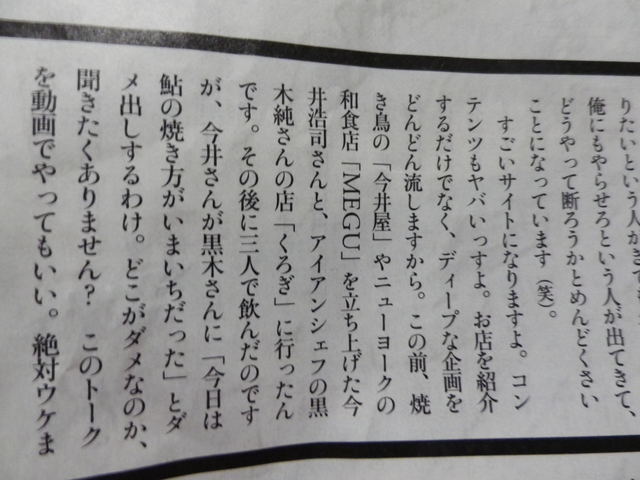 りたいという人が
俺にもやらせろという人が出てきて、
どうやって断ろうかとめんどくさい
ことになっています(笑)。
すごいサイトになりますよ。コン
テンツもヤバいっすよ。お店を紹介
するだけでなく、ディープな企画を
どんどん流しますから。この前、焼
き鳥の「今井屋」やニューヨークの
和食店「MEGU」を立ち上げた今
井浩司さんと、アイアンシェフの黒
木純さんの店「くろぎ」に行ったん
です。その後に三人で飲んだのです
が、今井さんが黒木さんに「今日は
鮎の焼き方がいまいちだった」とダ
メ出しするわけ。どこがダメなのか、
聞きたくありません? このトーク
を動画でやってもいい。絶対ウケま